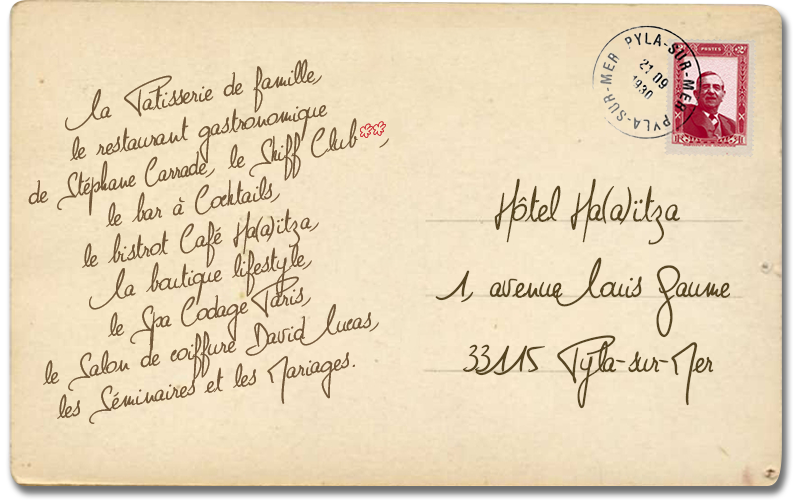 la Patisserie de famille,
le restaurant gastronomique
de Stéphane Carrade, le Skiff Club,
le bar à Cocktails,
le bistrot Café Ha(a)ïtza,
la boutique lifestyle,
le Spa Codage Paris,
le Salon de coiffure David Lucas,
les Séminaires et les Mariages.
PYLA-SUR-MER PYLA-SUR-MER PYLA-SUR-MER
21 09
1930
POSTES
Hôtel Ha(a)ïtza
1, avenue Louis Gaume
33115 Pyla-sur-Mer